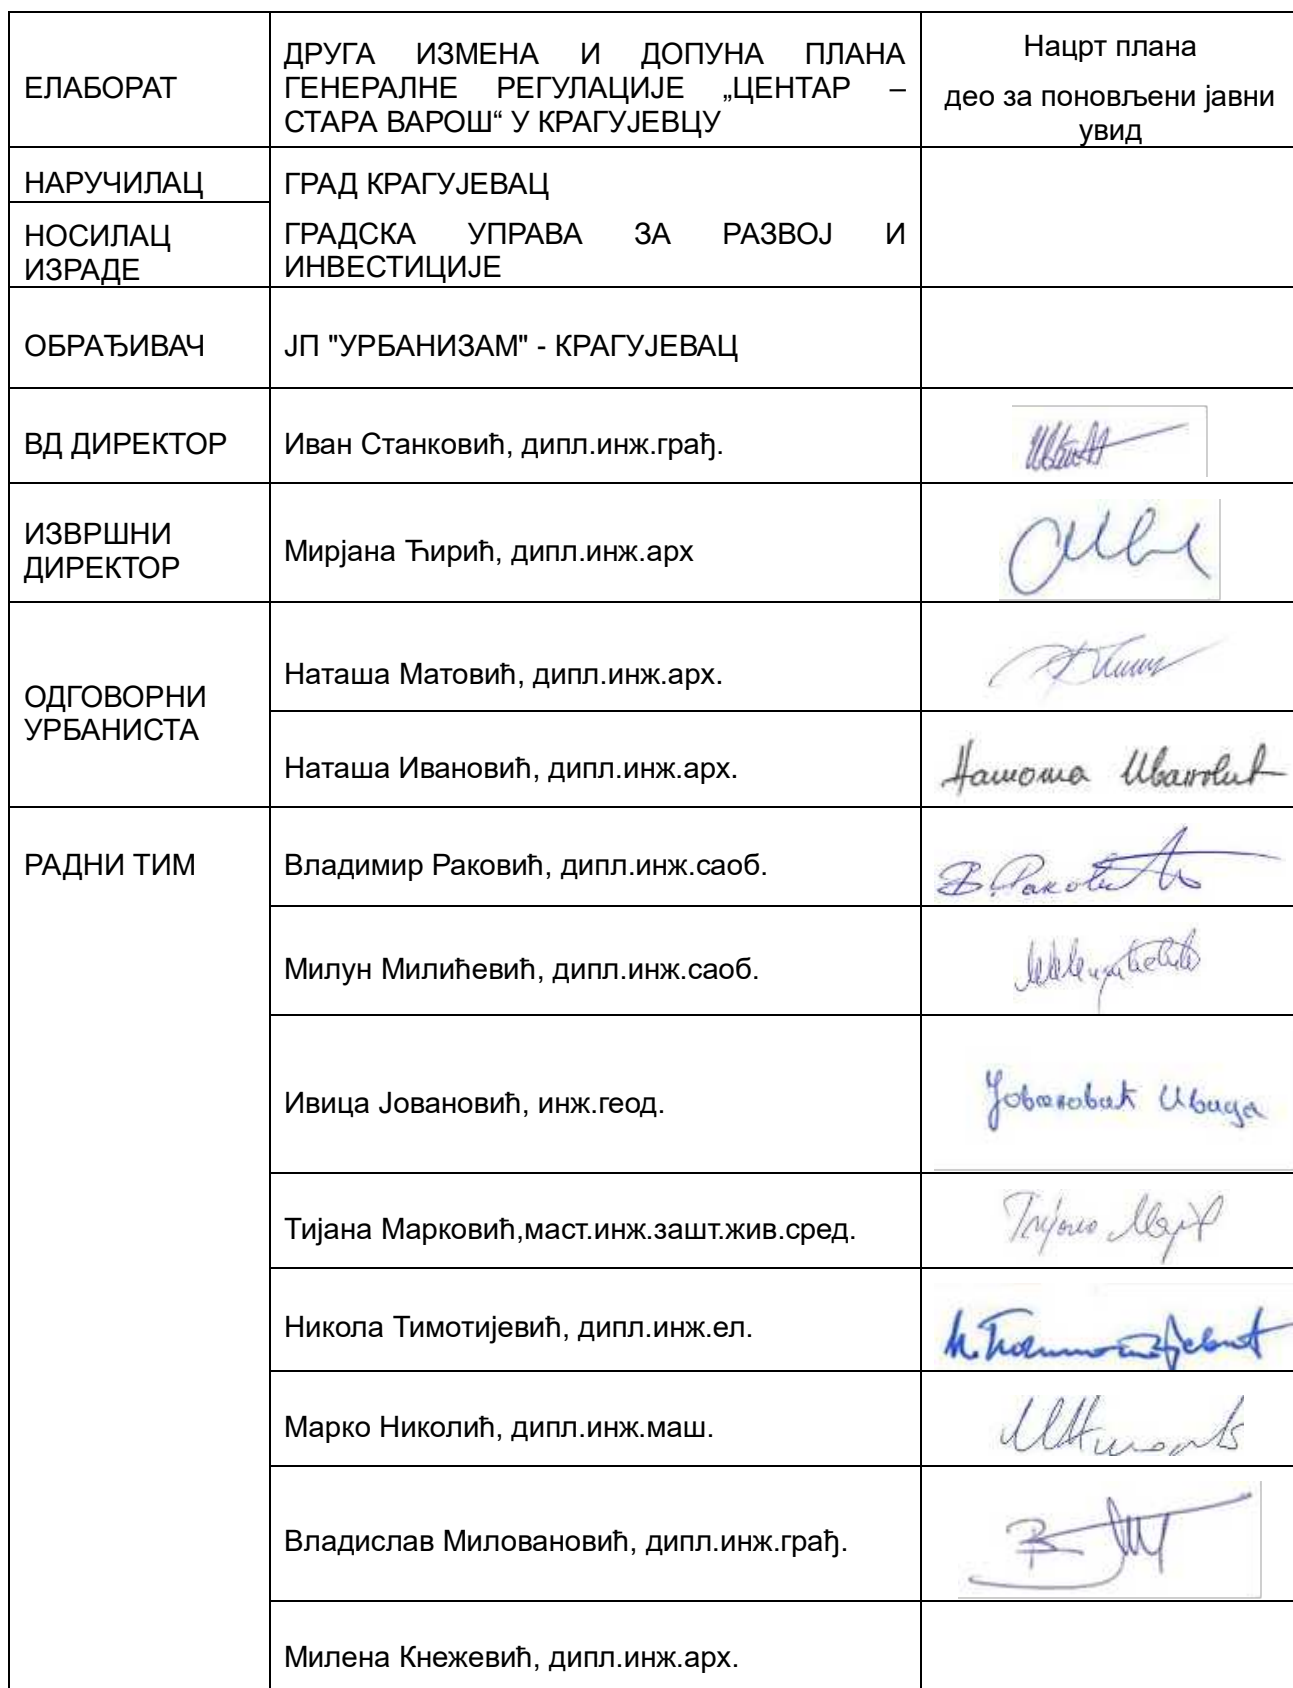 ЕЛАБОРАТ
ДРУГА ИЗМЕНА И ДОПУНА ПЛАНА
ГЕНЕРАЛНЕ РЕГУЛАЦИЈЕ „ЦЕНТАР –
СТАРА ВАРОШ“ У КРАГУЈЕВЦУ
Нацрт плана
део за поновљени јавни
увид
НАРУЧИЛАЦ
ГРАД КРАГУЈЕВАЦ
НОСИЛАЦ
ИЗРАДЕ
ГРАДСКА УПРАВА ЗА РАЗВОЈ И
ИНВЕСТИЦИЈЕ
ОБРАЂИВАЧ
ЈП "УРБАНИЗАМ" - КРАГУЈЕВАЦ
ВД ДИРЕКТОР
Иван Станковић, дипл.инж.грађ.
ИЗВРШНИ
ДИРЕКТОР
Мирјана Ћирић, дипл.инж.арх
ОДГОВОРНИ
УРБАНИСТА
Наташа Матовић, дипл.инж.арх.
Наташа Ивановић, дипл.инж.арх.
Наташа Ивановић
РАДНИ ТИМ
Владимир Раковић, дипл.инж.саоб.
В. Раковић
Милун Милићевић, дипл.инж.саоб.
Ивица Јовановић, инж.геод.
Јовановић Ивица
Тијана Марковић,маст.инж.зашт.жив.сред.
Никола Тимотијевић, дипл.инж.ел.
Н. Тимотијевић
Марко Николић, дипл.инж.маш.
Владислав Миловановић, дипл.инж.грађ.
Милена Кнежевић, дипл.инж.арх.